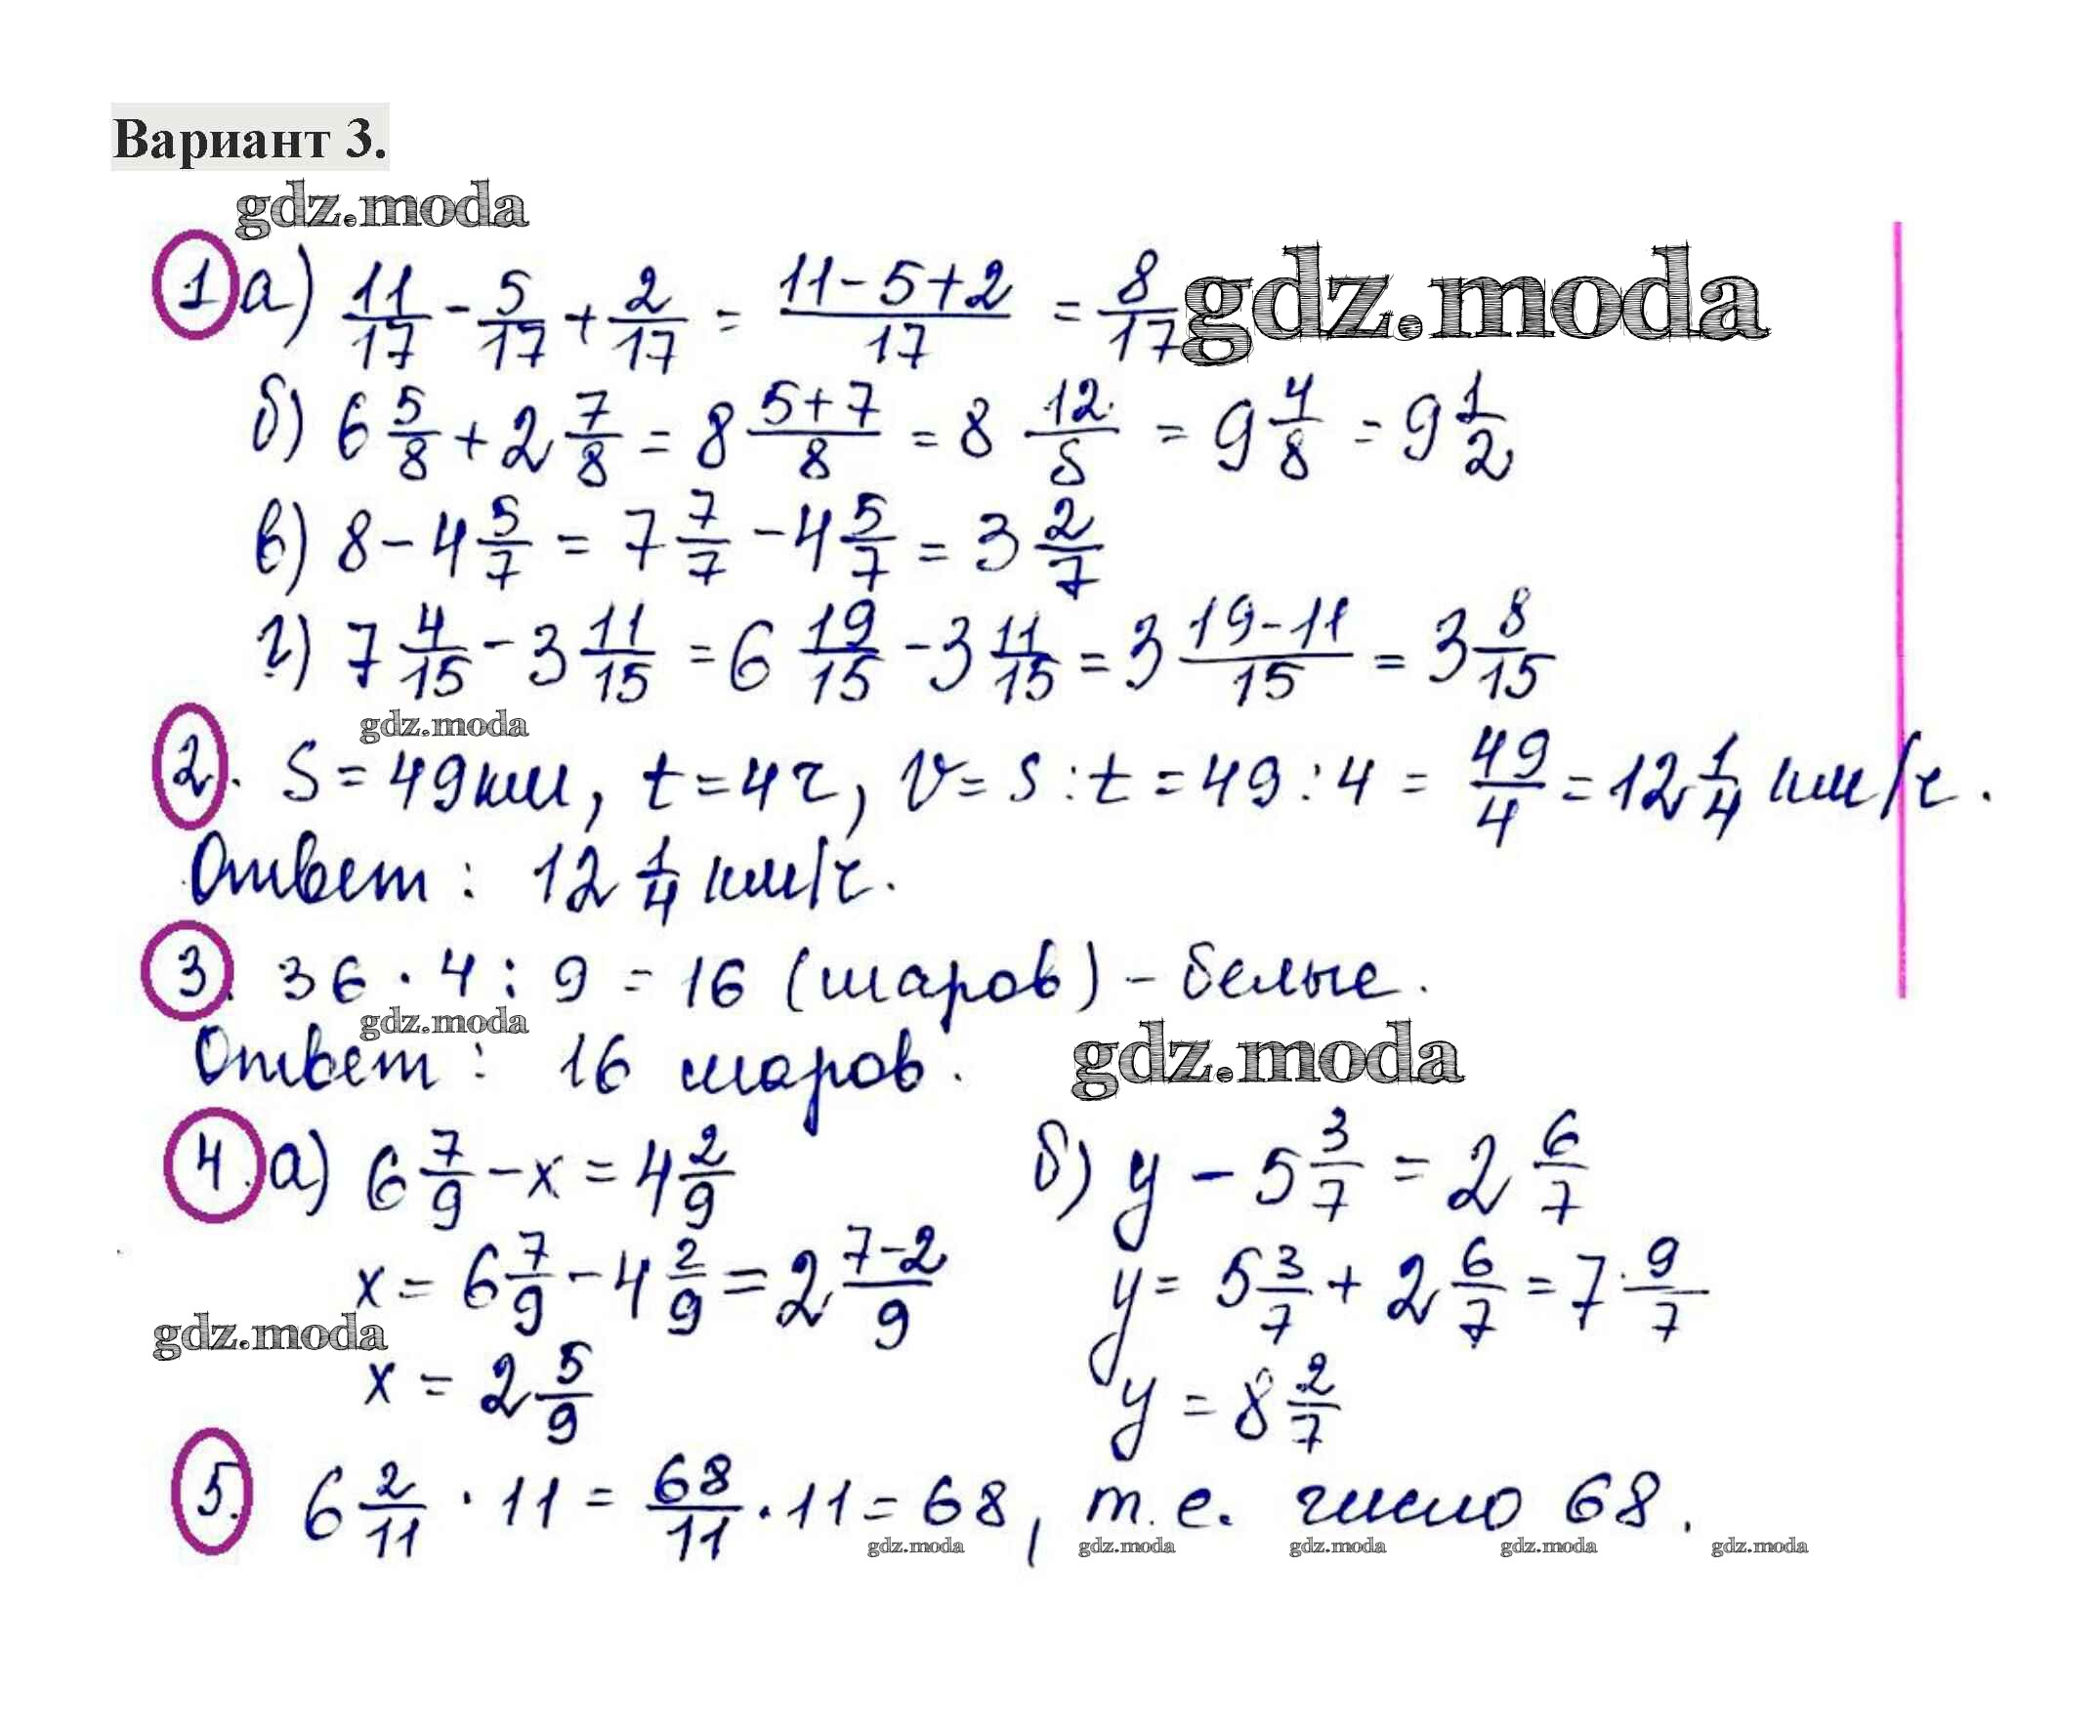 Вариант 3.
gdz.moda
1 а) 11/17 - 5/17 + 2/17 = (11-5+2)/17 = 8/17 gdz.moda
б) 6 5/8 + 2 7/8 = 8 (5+7)/8 = 8 12/8 = 9 4/8 = 9 1/2
в) 8 - 4 5/7 = 7 7/7 - 4 5/7 = 3 2/7
г) 7 4/15 - 3 11/15 = 6 19/15 - 3 11/15 = 3 (19-11)/15 = 3 8/15
gdz.moda
2. S = 49 км, t = 4 ч, v = s : t = 49 : 4 = 49/4 = 12 1/4 км/ч.
Ответ: 12 1/4 км/ч.
3. 36 · 4 : 9 = 16 (шаров) - белые.
gdz.moda
Ответ: 16 шаров. gdz.moda
4. а) 6 7/9 - x = 4 2/9
x = 6 7/9 - 4 2/9 = 2 (7-2)/9
gdz.moda
x = 2 5/9
б) y - 5 3/7 = 2 6/7
y = 5 3/7 + 2 6/7 = 7 9/7
y = 8 2/7
5. 6 2/11 · 11 = 68/11 · 11 = 68, т.е. число 68.
gdz.moda gdz.moda gdz.moda gdz.moda gdz.moda